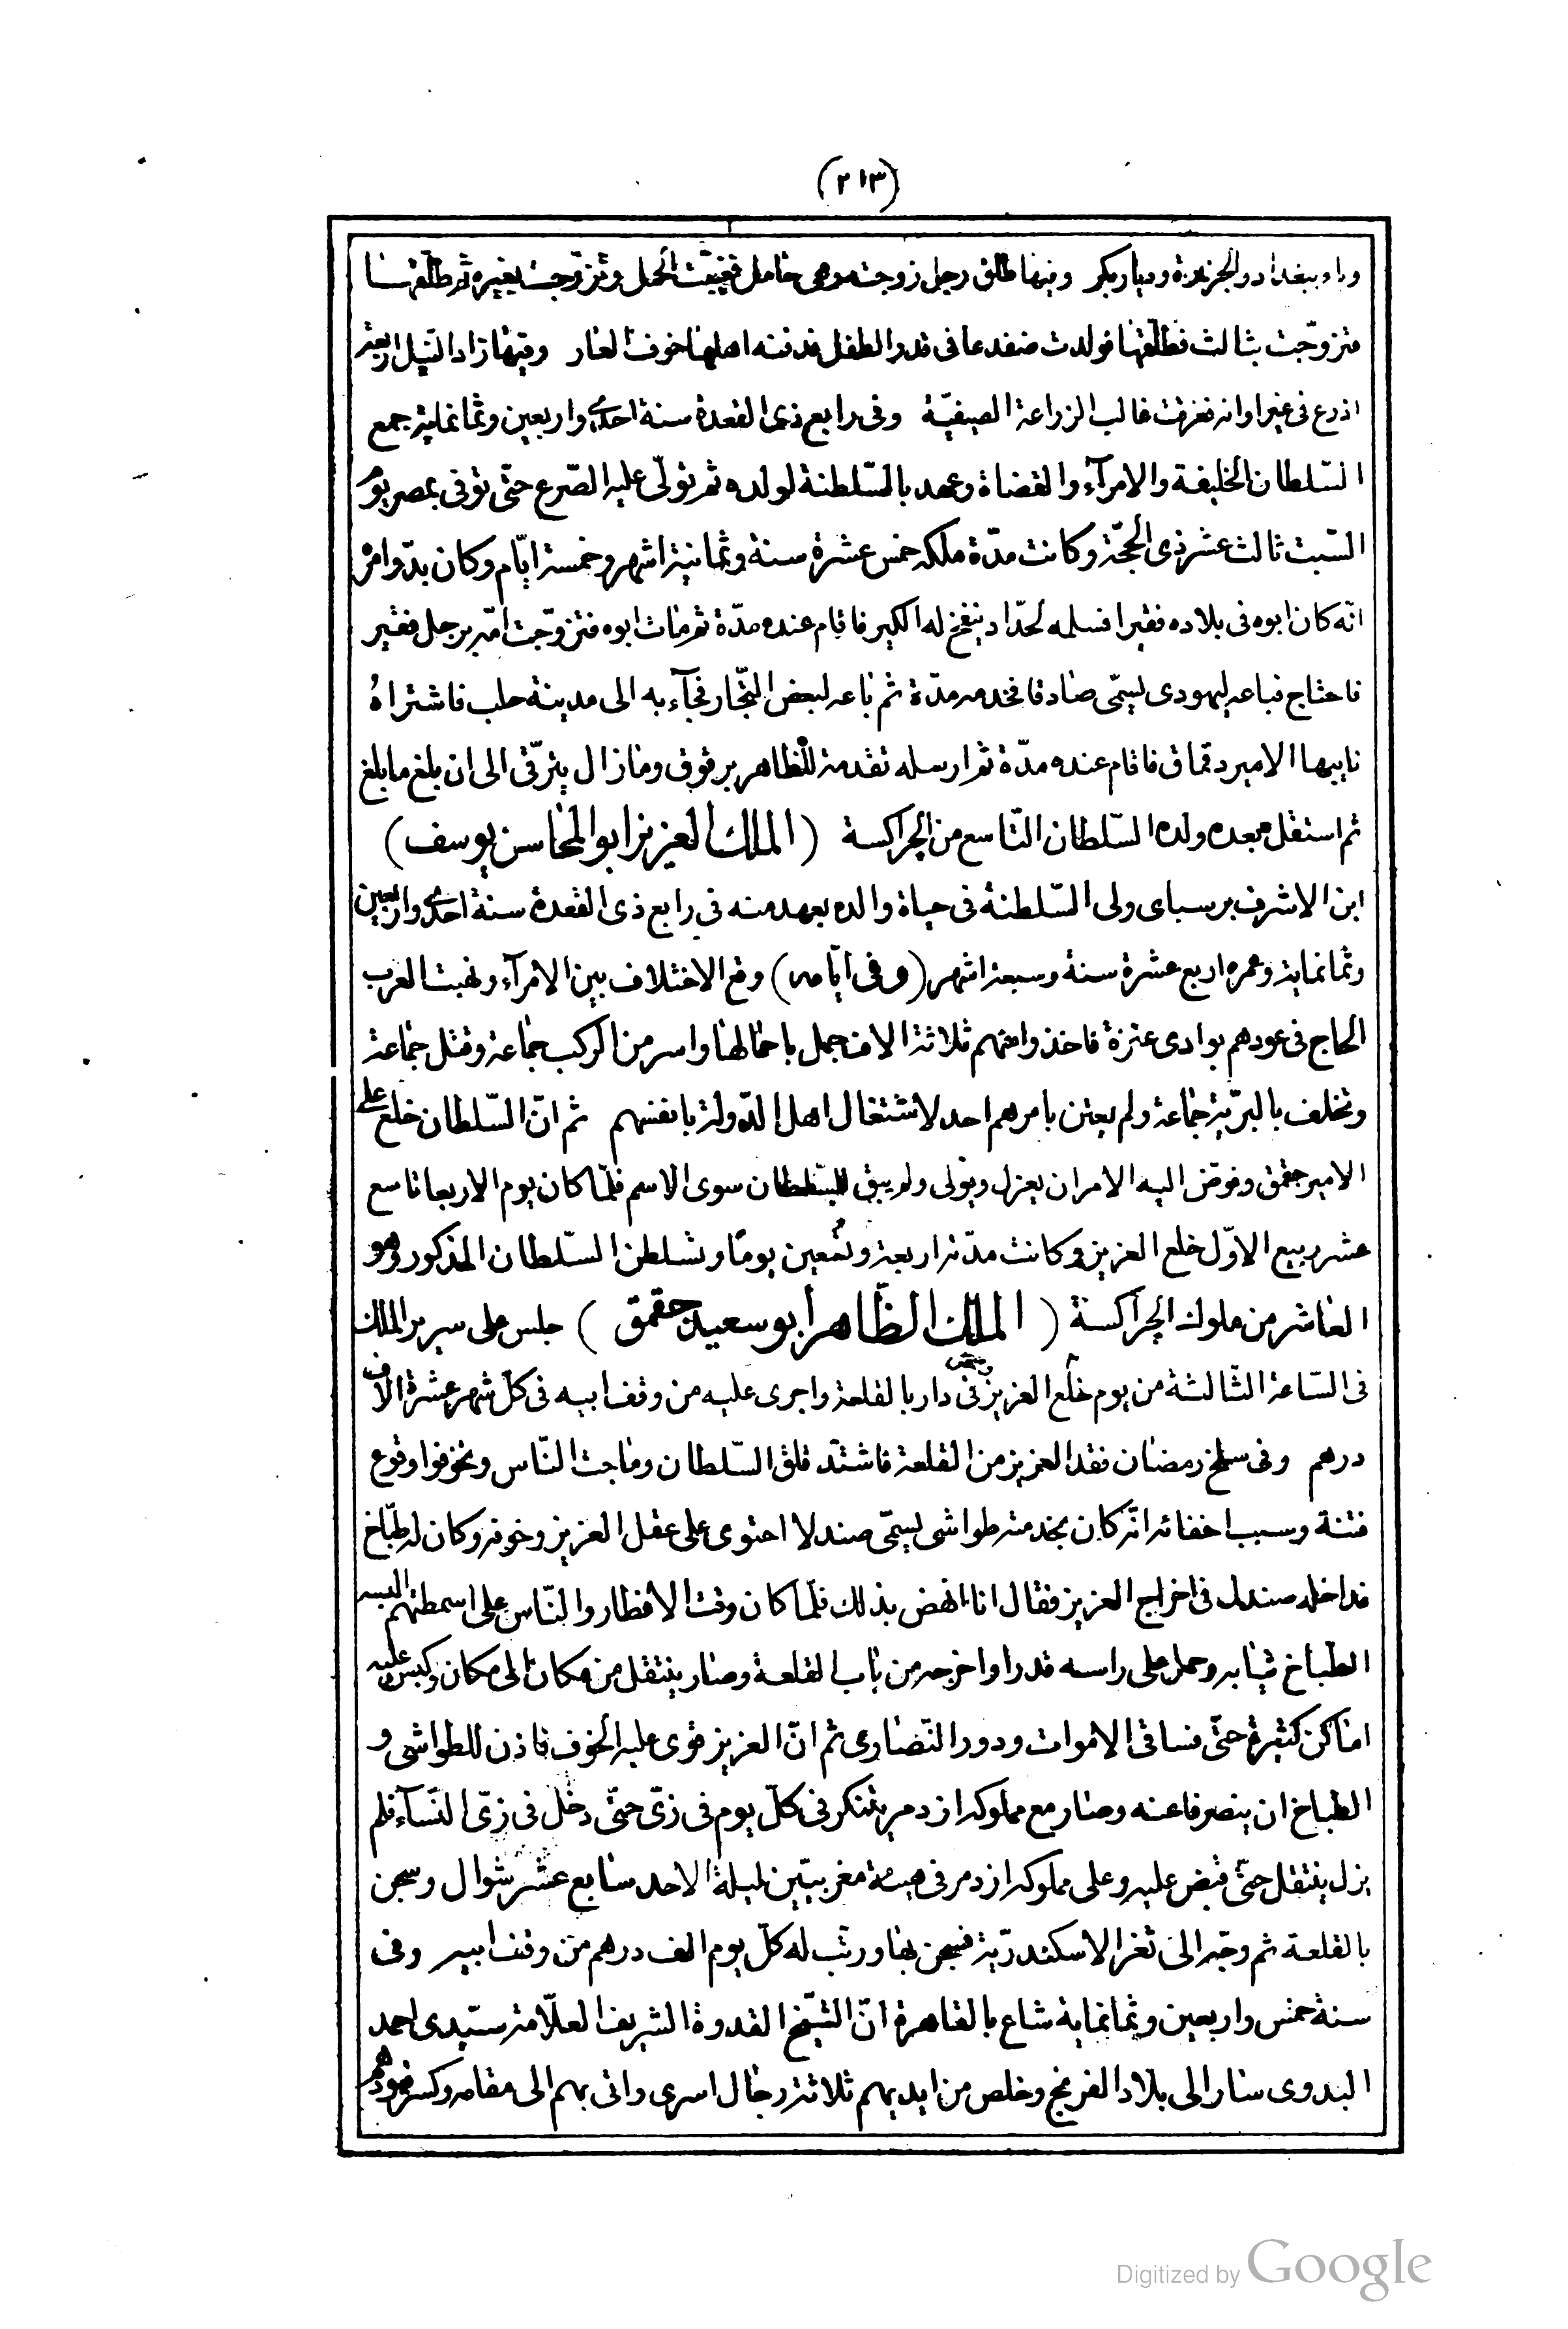 (٢١٣)
وباء ببغداد والجزيرة وديار بكر وفيها طلق رجل زوجته وهي حامل فغيبت الحمل وتزوجت بغيره ثم طلقها
فتزوجت بثالث فطلقها فولدت ضفدعا في قدر الطفل فدفنه اهلها خوف العار وفيها زاد النيل اربعة
اذرع في غير اوانه فغرقت غالب الزراعة الصيفيّة وفي رابع ذي القعدة سنة احدى واربعين وثمانماية جمع
السّلطان الخليفة والامرآء والقضاة وعهد بالسّلطنة لولده ثم تولّى عليه الصّرع حتّى توفى بمصر يوم
السّبت ثالث عشر ذي الحجّة وكانت مدّة ملكه خمس عشرة سنة وثمانية اشهر وخمسة ايّام وكان بدو امره
انّه كان ابوه في بلاده فقيرا فسلمه لحدّاد ينفخ له الكير فاقام عنده مدّة ثم مات ابوه فتزوّجت امّه برجل فقير
فاحتاج فباعه ليهودى يسمّى صادقا فخدمه مدّة ثم باعه لبعض التجّار فجآء به الى مدينة حلب فاشتراهُ
نايبها الامير دقماق فاقام عنده مدّة ثم ارسله تقدمة للظاهر برقوق ومازال يترقّى الى ان بلغ ما بلغ
ثم استقل بعده ولده السّلطان التّاسع من الجراكسة (الملك العزيز ابو المحاسن يوسف)
ابن الاشرف برسباى ولى السّلطنة في حياة والده بعهد منه في رابع ذي القعدة سنة احدى واربعين
وثمانماية وعمره اربع عشرة سنة وسبعة اشهر (وفى ايّامه) وقع الاختلاف بين الامرآء ونهبت العرب
الحاج في عودهم بوادى عنزة فاخذوا منهم ثلاثة الاف جمل باحمالها واسر من الركب جماعة وقتل جماعة
وتخلف بالبرّية جماعة ولم يعتن بامرهم احد لاشتغال اهل الدّولة بانفسهم ثم انّ السّلطان خلع على
الامير جقمق وفوّض اليه الامر ان يعزل ويولى ولم يبق للسّلطان سوى الاسم فلمّا كان يوم الاربعا تاسع
عشر ربيع الاوّل خلع العزيز وكانت مدّته اربعة وتسعين يومًا وتسلطن السّلطان المذكور وهو
العاشر من ملوك الجراكسة (الملك الظّاهر أبو سعيد جقمق) جلس على سرير الملك
في السّاعة الثّالثة من يوم خلع العزيز وسجن في دار بالقلعة واجرى عليه من وقف ابيه في كلّ شهر عشرة الاف
درهم وفى سلخ رمضان فقد العزيز من القلعة فاشتدّ قلق السّلطان وماجت النّاس وتخوفوا وقوع
فتنة وسبب اخفائه انّه كان بخدمته طواشى يسمّى صندلا احتوى على عقل العزيز وخوفه وكان له طبّاخ
فداخله صندل في اخراج العزيز فقال انا انهض بذلك فلمّا كان وقت الافطار والنّاس على اسمطتهم البسه
الطبّاخ ثيابه وحمل على راسه قدرا واخرجه من باب القلعة وصار ينتقل من مكان الى مكان وكبس عليه
اماكن كثيرة حتّى فساقى الاموات ودور النّصارى ثم انّ العزيز قوى عليه الخوف فاذن للطواشى و
الطباخ ان ينصرفا عنه وصار مع مملوكه ازدمر يتنكر في كلّ يوم في زىّ حتّى دخل في زىّ النّسآء فلم
يزل ينتقل حتّى قبض عليه وعلى مملوكه ازدمر في هيئة مغربيّين ليلة الاحد سابع عشر شوال وسجن
بالقلعة ثم وجّه الى ثغر الاسكندريّة فسجن بها ورتّب له كلّ يوم الف درهم من وقف ابيه وفى
سنة خمس واربعين وثمانماية شاع بالقاهرة انّ الشّيخ القدوة الشريف العلّامة سيّدى احمد
البدوى سار الى بلاد الفرنج وخلص من ايديهم ثلاثة رجال اسرى واتى بهم الى مقامه وكسر قيودهم
Digitized by Google